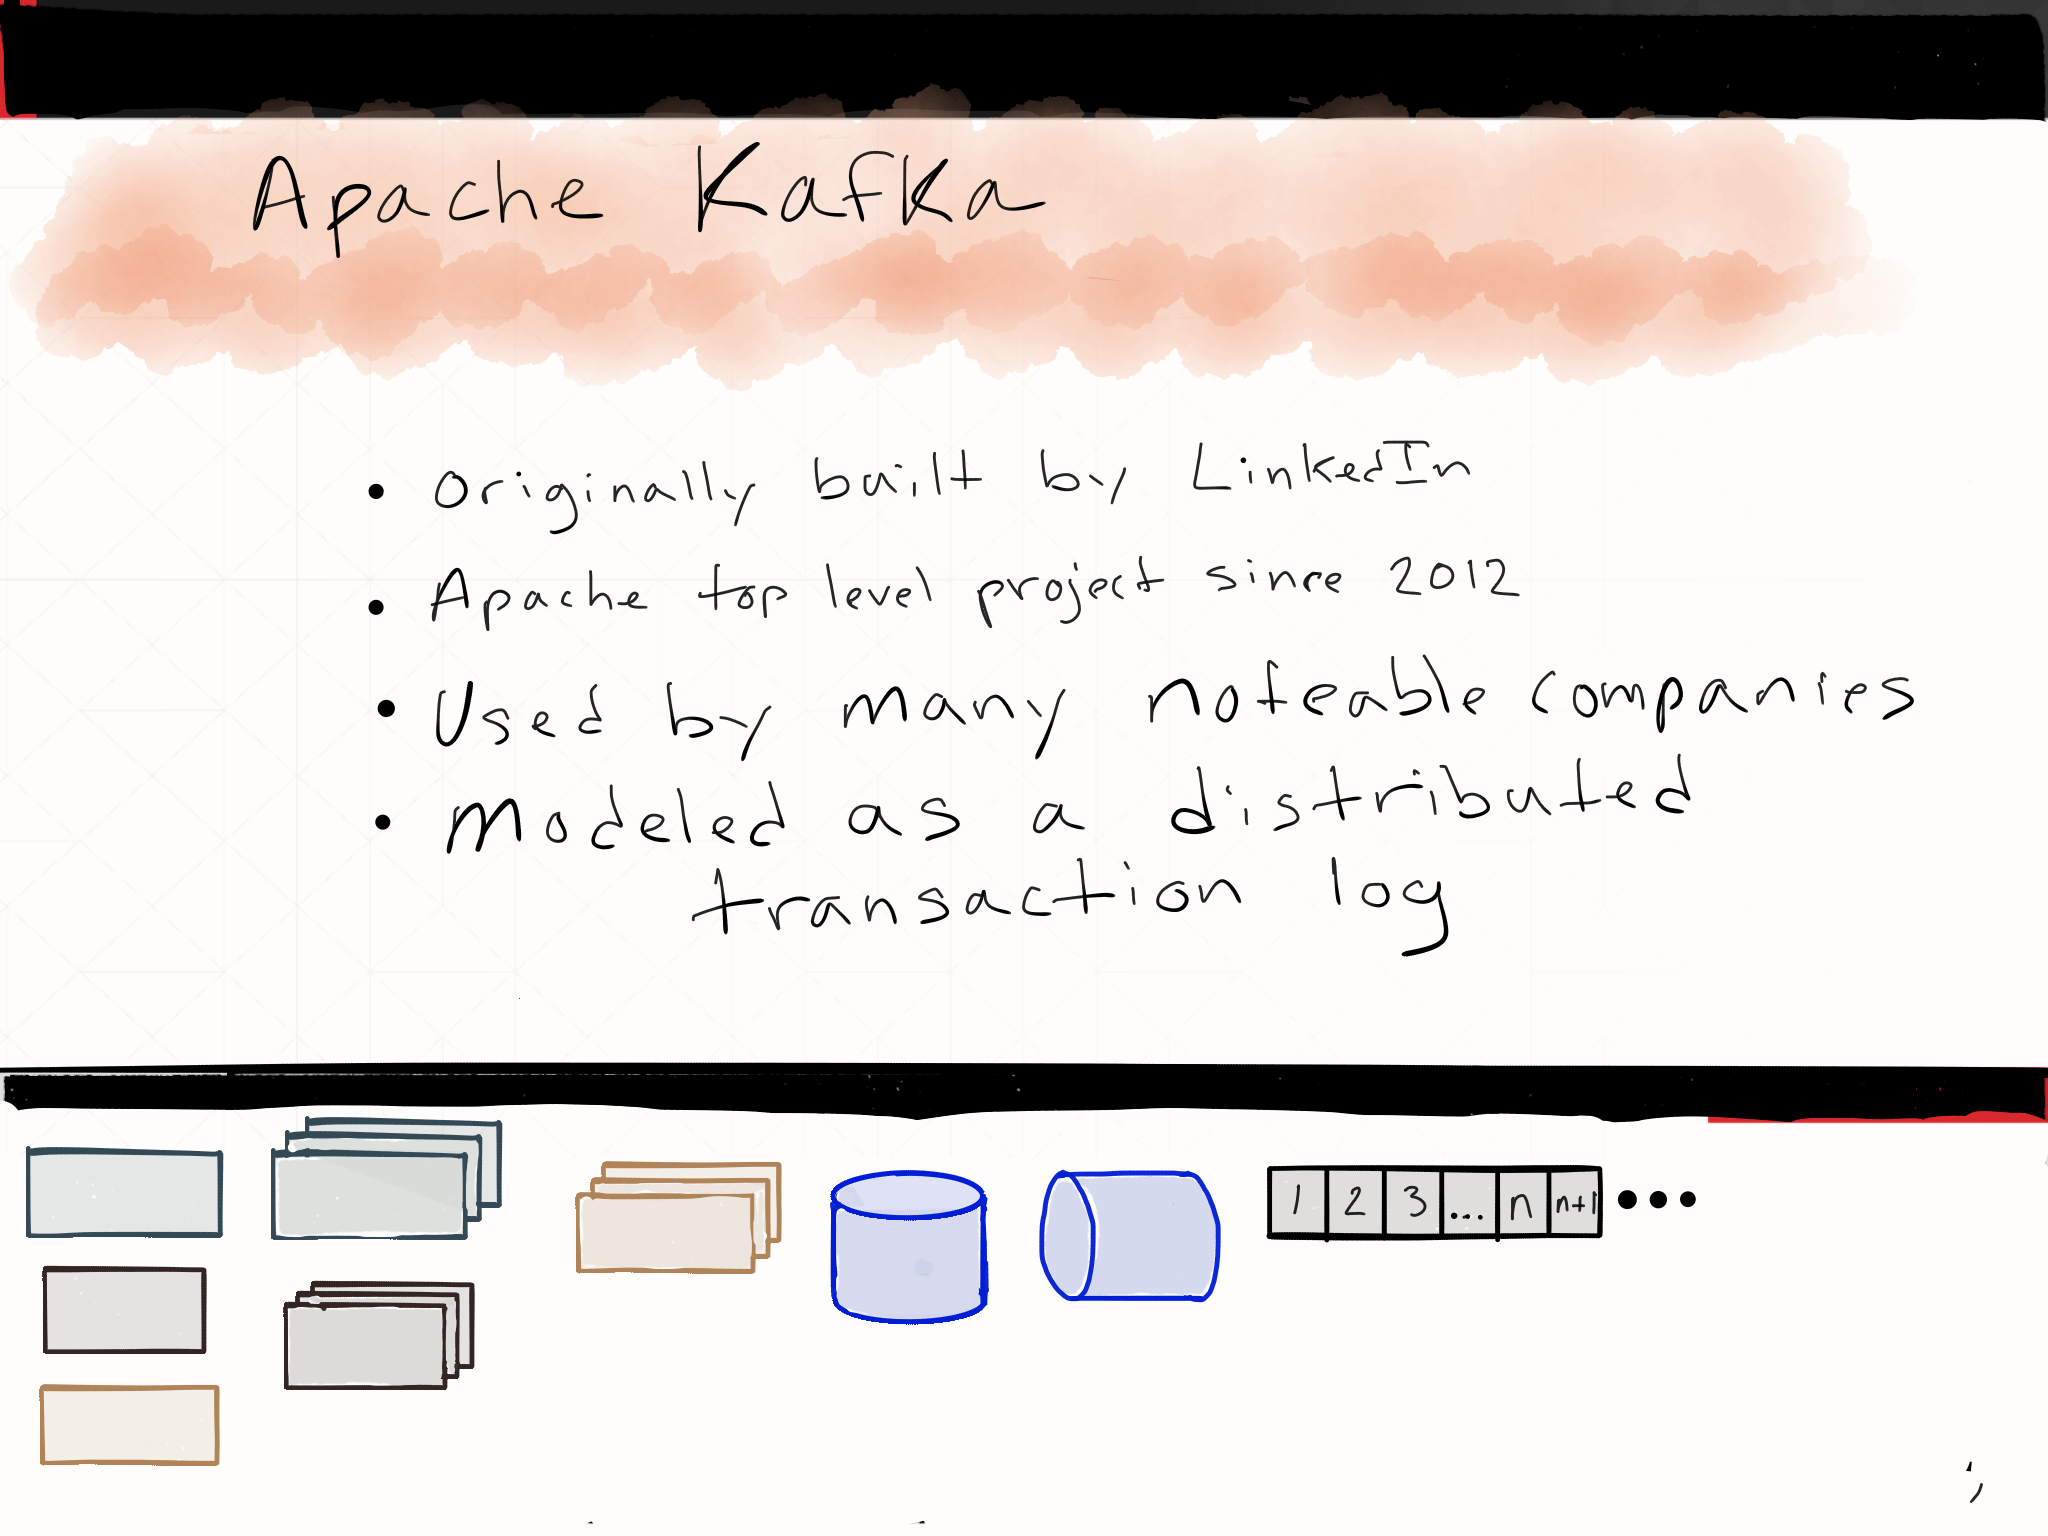 Apache Kafka
• Originally built by LinkedIn
• Apache top level project since 2012
• Used by many noteable companies
• Modeled as a distributed
transaction log
1 2 3 ... n n+1 •••